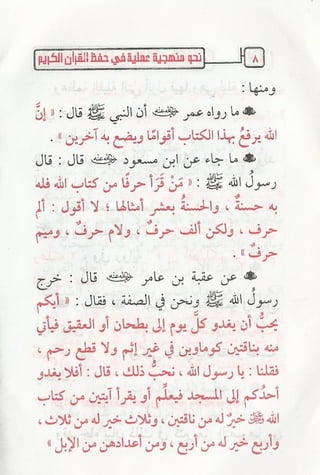 ٨ نحو منهجية عملية في حفظ القرآن الكريم
ومنها :
ما رواه عمر رضي الله عنه أن النبي ﷺ قال : « إنَّ
الله يرفعُ بهذا الكتاب أقوامًا ويضع به آخرين » .
ما جاء عن ابن مسعود رضي الله عنه قال : قال
رسولُ الله ﷺ : « مَنْ قَرَأ حرفًا من كتاب الله فله
به حسنةٌ ، والحسنةُ بعشر أمثالها ؛ لا أقول : ألم
حرف ، ولكن ألف حرفٌ ، ولام حرفٌ ، وميم
حرفٌ »
عن عقبة بن عامر رضي الله عنه قال : خرج
رسولُ الله ﷺ ونحن في الصفة ، فقال : « أيكم
يحبُّ أن يغدو كلَّ يوم إلى بطحان أو العقيق فيأتي
منه بناقتين كوماوين في غير إثم ولا قطع رحم ،
فقلنا : يا رسول الله ، نحبُّ ذلك ، قال : أفلا يغدو
أحدُكم إلى المسجد فيعلِّم أو يقرأ آيتين من كتاب
الله عز وجل خيرٌ له من ناقتين ، وثلاث خير له من ثلاث ،
وأربع خير له من أربع ، ومن أعدادهن من الإبل »